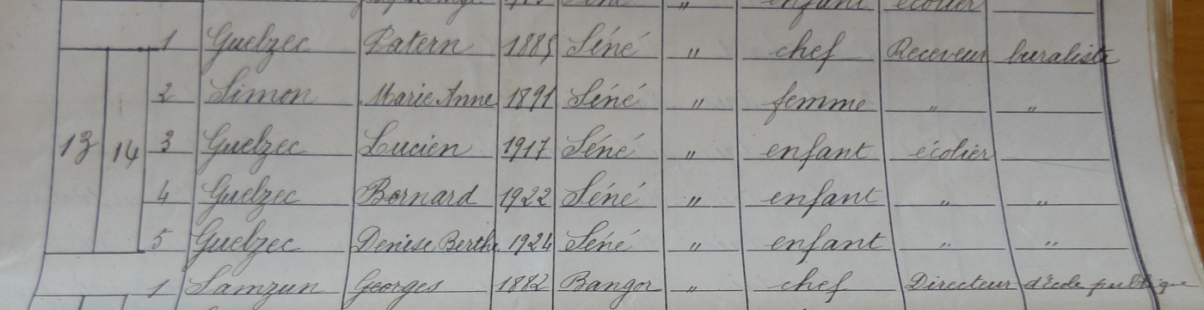 enfant écolier
1 Guelzec Patern 1885 Séné " chef Receveur buraliste
2 Simon Marie Anne 1891 Séné " femme " "
13 14 3 Guelzec Lucien 1917 Séné " enfant écolier
4 Guelzec Bernard 1922 Séné " enfant " "
5 Guelzec Denise Berthe 1924 Séné " enfant " "
1 Samzun Georges 1882 Bangor " chef Directeur d'école publique